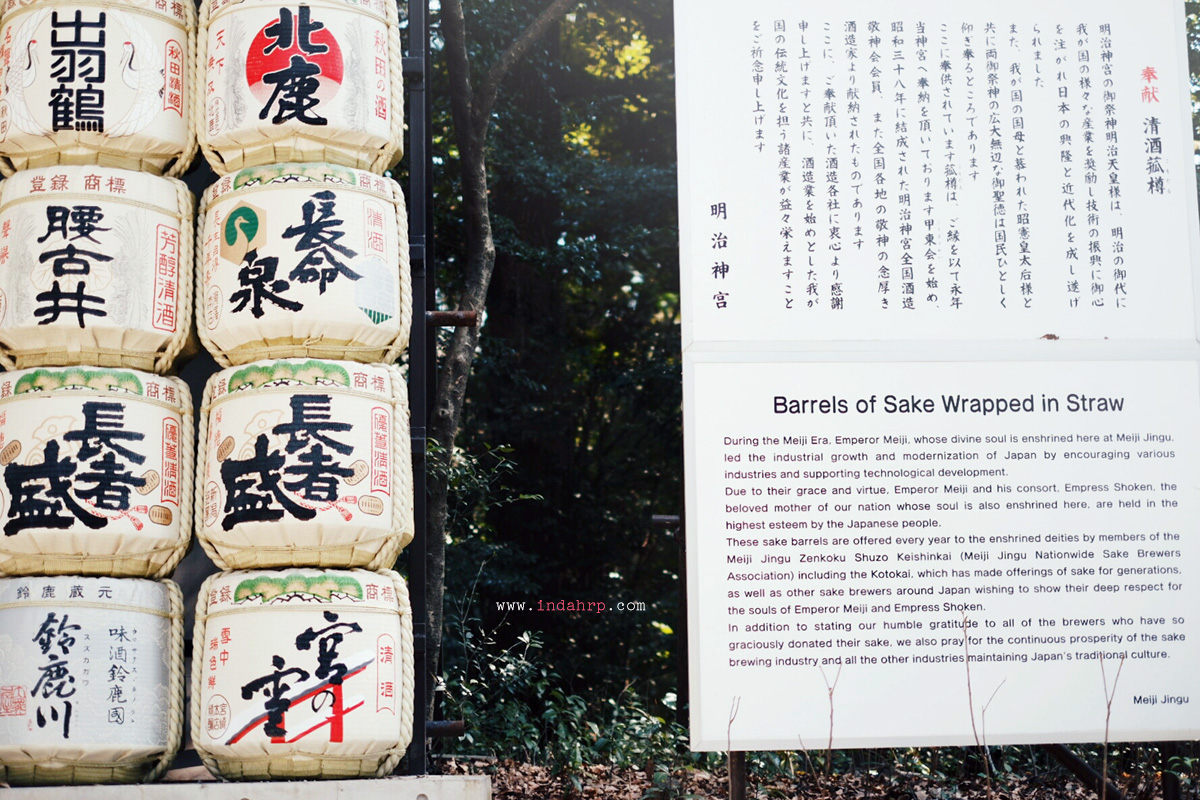 出羽鶴
秋田清酒
北鹿
秋田の酒
登錄 商標
腰古井
芳醇清酒
登録 商標
長命泉
清酒
登録 商標
長者盛
優等清酒
登録 商標
長者盛
優等清酒
鈴鹿蔵元
味酒鈴鹿國
鈴鹿川
スズカガワ
登録 商標
宮の雪
雪中
清酒
奉献 清酒菰樽
明治神宮の御祭神明治天皇様は、明治の御代に
我が国の様々な産業を奨励し技術の振興に御心
を注がれ日本の興隆と近代化を成し遂げ
られました
また、我が国の国母と慕われた昭憲皇太后様と
共に両御祭神の広大無辺な御聖徳は国民ひとしく
仰ぎ奉るところであります
ここに奉供されています菰樽は、ご縁を以て永年
当神宮へ奉納を頂いております甲東会を始め、
昭和三十八年に結成された明治神宮全国酒造
敬神会会員、また全国各地の敬神の念厚き
酒造家より献納されたものであります
ここに、ご奉献頂いた酒造各社に衷心より感謝
申し上げますと共に、酒造業を始めとした我が
国の伝統文化を担う諸産業が益々栄えますこと
をご祈念申し上げます
明治神宮
Barrels of Sake Wrapped in Straw
During the Meiji Era, Emperor Meiji, whose divine soul is enshrined here at Meiji Jingu,
led the industrial growth and modernization of Japan by encouraging various
industries and supporting technological development.
Due to their grace and virtue, Emperor Meiji and his consort, Empress Shoken, the
beloved mother of our nation whose soul is also enshrined here, are held in the
highest esteem by the Japanese people.
These sake barrels are offered every year to the enshrined deities by members of the
Meiji Jingu Zenkoku Shuzo Keishinkai (Meiji Jingu Nationwide Sake Brewers
Association) including the Kotokai, which has made offerings of sake for generations,
as well as other sake brewers around Japan wishing to show their deep respect for
the souls of Emperor Meiji and Empress Shoken.
In addition to stating our humble gratitude to all of the brewers who have so
graciously donated their sake, we also pray for the continuous prosperity of the sake
brewing industry and all the other industries maintaining Japan's traditional culture.
Meiji Jingu
www.indahrp.com